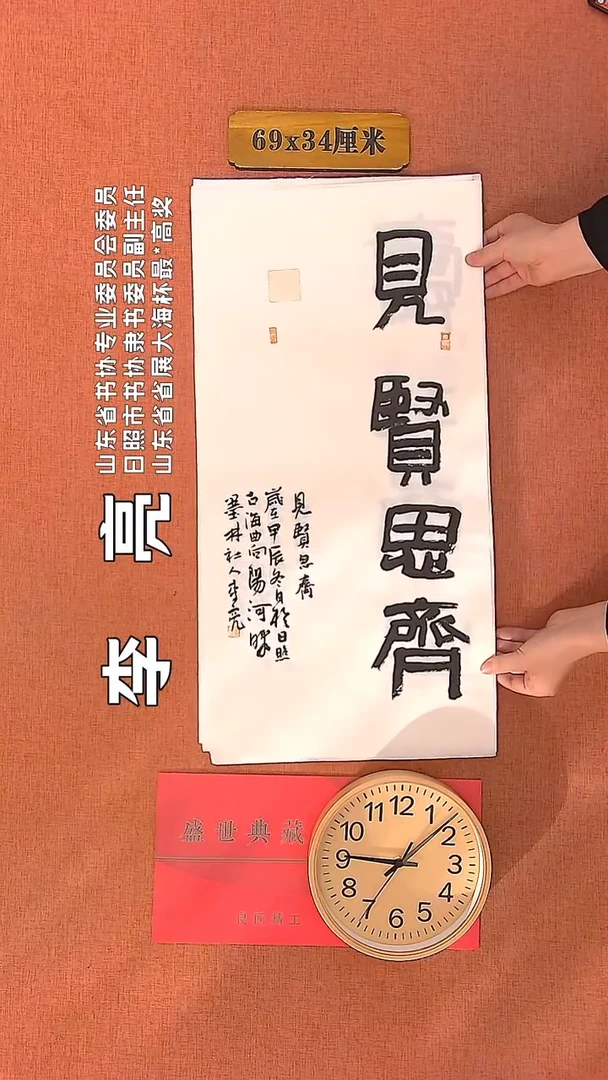 69x34厘米
見賢思齊
見賢思齊
歲在甲辰冬月於日照
古海曲向陽河畔
墨林社人李亮
李亮
山东省书协专业委员会委员
日照市书协隶书委员副主任
山东省省展大海杯最*高奖
盛世典藏
良匠精工
12
1
2
3
4
5
6
7
8
9
10
11